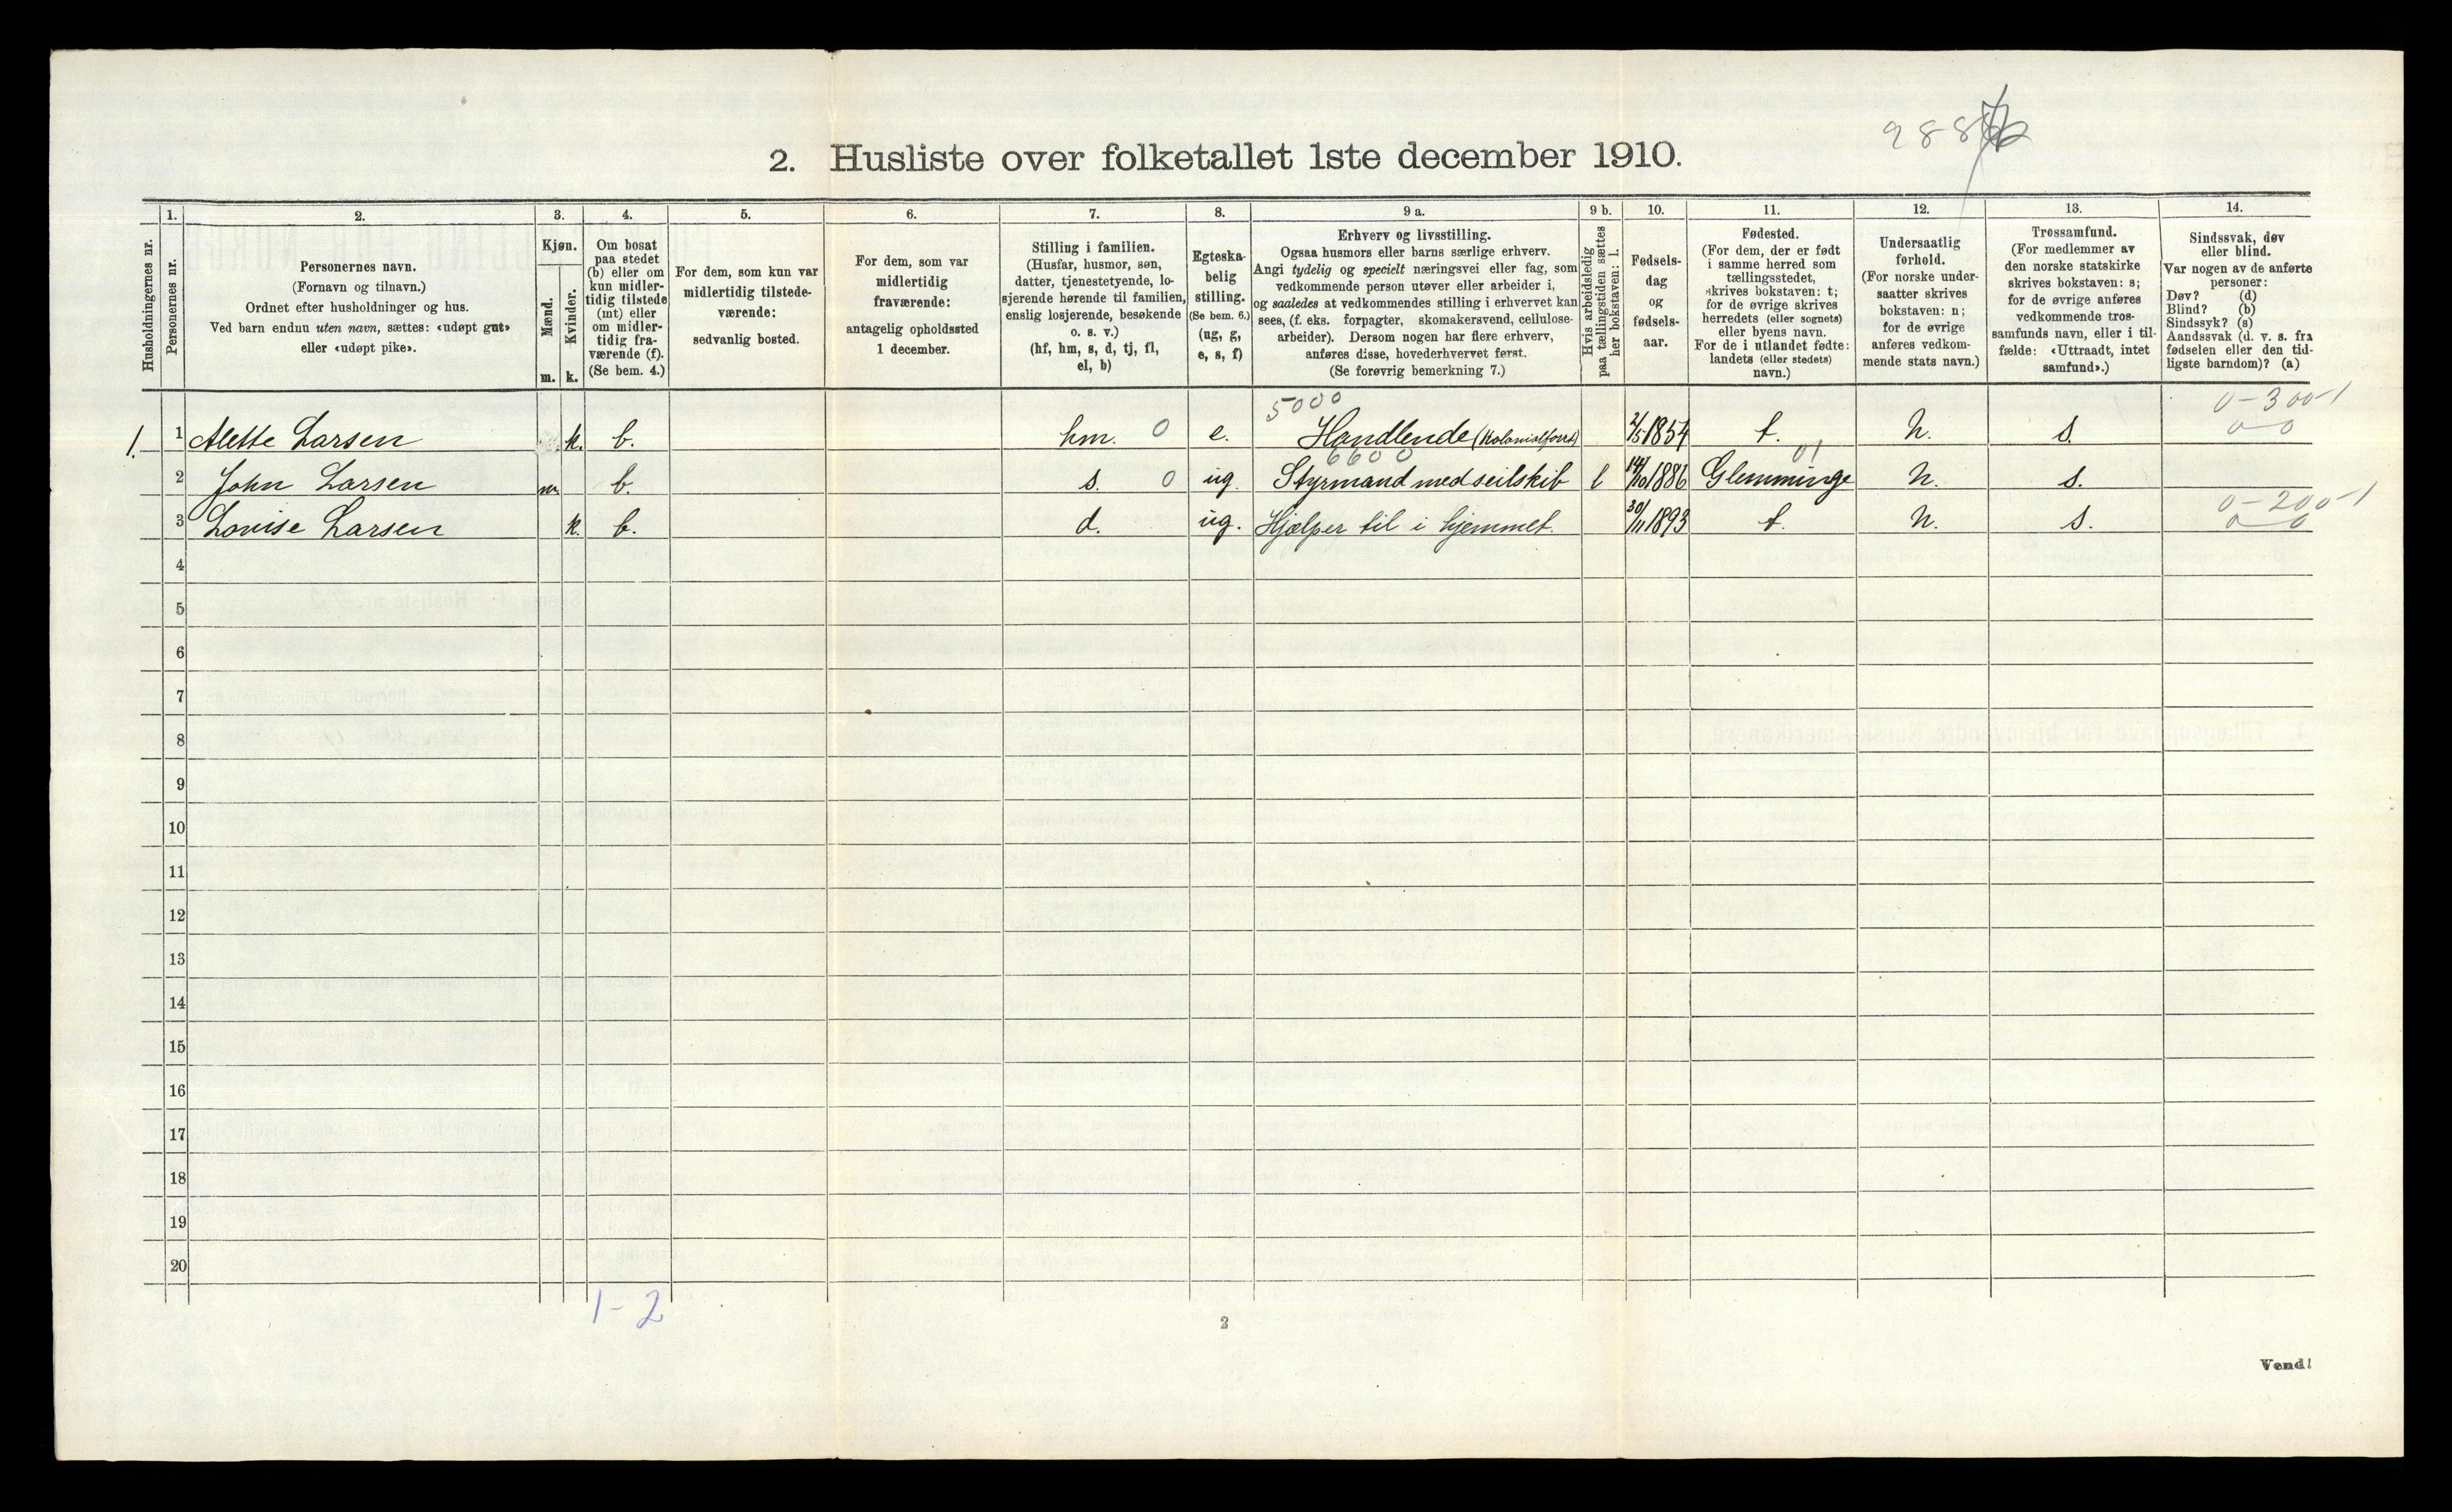 2. Husliste over folketallet 1ste december 1910.
1.
2.
3.
4.
5.
6.
7.
8.
9 a.
9 b.
10.
11.
12.
13.
14.
Husholdningernes nr.
Personernes nr.
Personernes navn.
(Fornavn og tilnavn.)
Ordnet efter husholdninger og hus.
Ved barn endnu uten navn, sættes: «udøpt gut»
eller «udøpt pike».
Kjøn.
Mænd.
Kvinder.
m. k.
Om bosat
paa stedet
(b) eller om
kun midler-
tidig tilstede
(mt) eller
om midler-
tidig fra-
værende (f).
(Se bem. 4.)
For dem, som kun var
midlertidig tilstede-
værende:
sedvanlig bosted.
For dem, som var
midlertidig
fraværende:
antagelig opholdssted
1 december.
Stilling i familien.
(Husfar, husmor, søn,
datter, tjenestetyende, lo-
sjerende hørende til familien,
enslig losjerende, besøkende
o. s. v.)
(hf, hm, s, d, tj, fl,
el, b)
Egteska-
belig
stilling.
(Se bem. 6.)
(ug, g,
e, s, f)
Erhverv og livsstilling.
Ogsaa husmors eller barns særlige erhverv.
Angi tydelig og specielt næringsvei eller fag, som
vedkommende person utøver eller arbeider i,
og saaledes at vedkommendes stilling i erhvervet kan
sees, (f. eks. forpagter, skomakersvend, cellulose-
arbeider). Dersom nogen har flere erhverv,
anføres disse, hovederhvervet først.
(Se forøvrig bemerkning 7.)
Hvis arbeidsledig
paa tællingstiden sættes
her bokstaven: l.
Fødsels-
dag
og
fødsels-
aar.
Fødested.
(For dem, der er født
i samme herred som
tællingsstedet,
skrives bokstaven: t;
for de øvrige skrives
herredets (eller sognets)
eller byens navn.
For de i utlandet fødte:
landets (eller stedets)
navn.)
Undersaatlig
forhold.
(For norske under-
saatter skrives
bokstaven: n;
for de øvrige
anføres vedkom-
mende stats navn.)
Trossamfund.
(For medlemmer av
den norske statskirke
skrives bokstaven: s;
for de øvrige anføres
vedkommende tros-
samfunds navn, eller i til-
fælde: «Uttraadt, intet
samfund».)
Sindssvak, døv
eller blind.
Var nogen av de anførte
personer:
Døv? (d)
Blind? (b)
Sindssyk? (s)
Aandssvak (d. v. s. fra
fødselen eller den tid-
ligste barndom)? (a)
5000
0-300-1
1. 1 Alette Larsen k. b. hm. 0 e. Handlende (Kolonialforr.) 2/5 1854 t. n. s. 0-0
6600 01
2 John Larsen m. b. s. 0 ug. Styrmand med seilskib l 14/10 1886 Glemminge n. s.
0-200-1
3 Lovise Larsen k. b. d. ug. Hjælper til i hjemmet. 30/11 1893 t. n. s. 0-0
4
5
6
7
8
9
10
11
12
13
14
15
16
17
18
19
20
1-2
2
Vend!